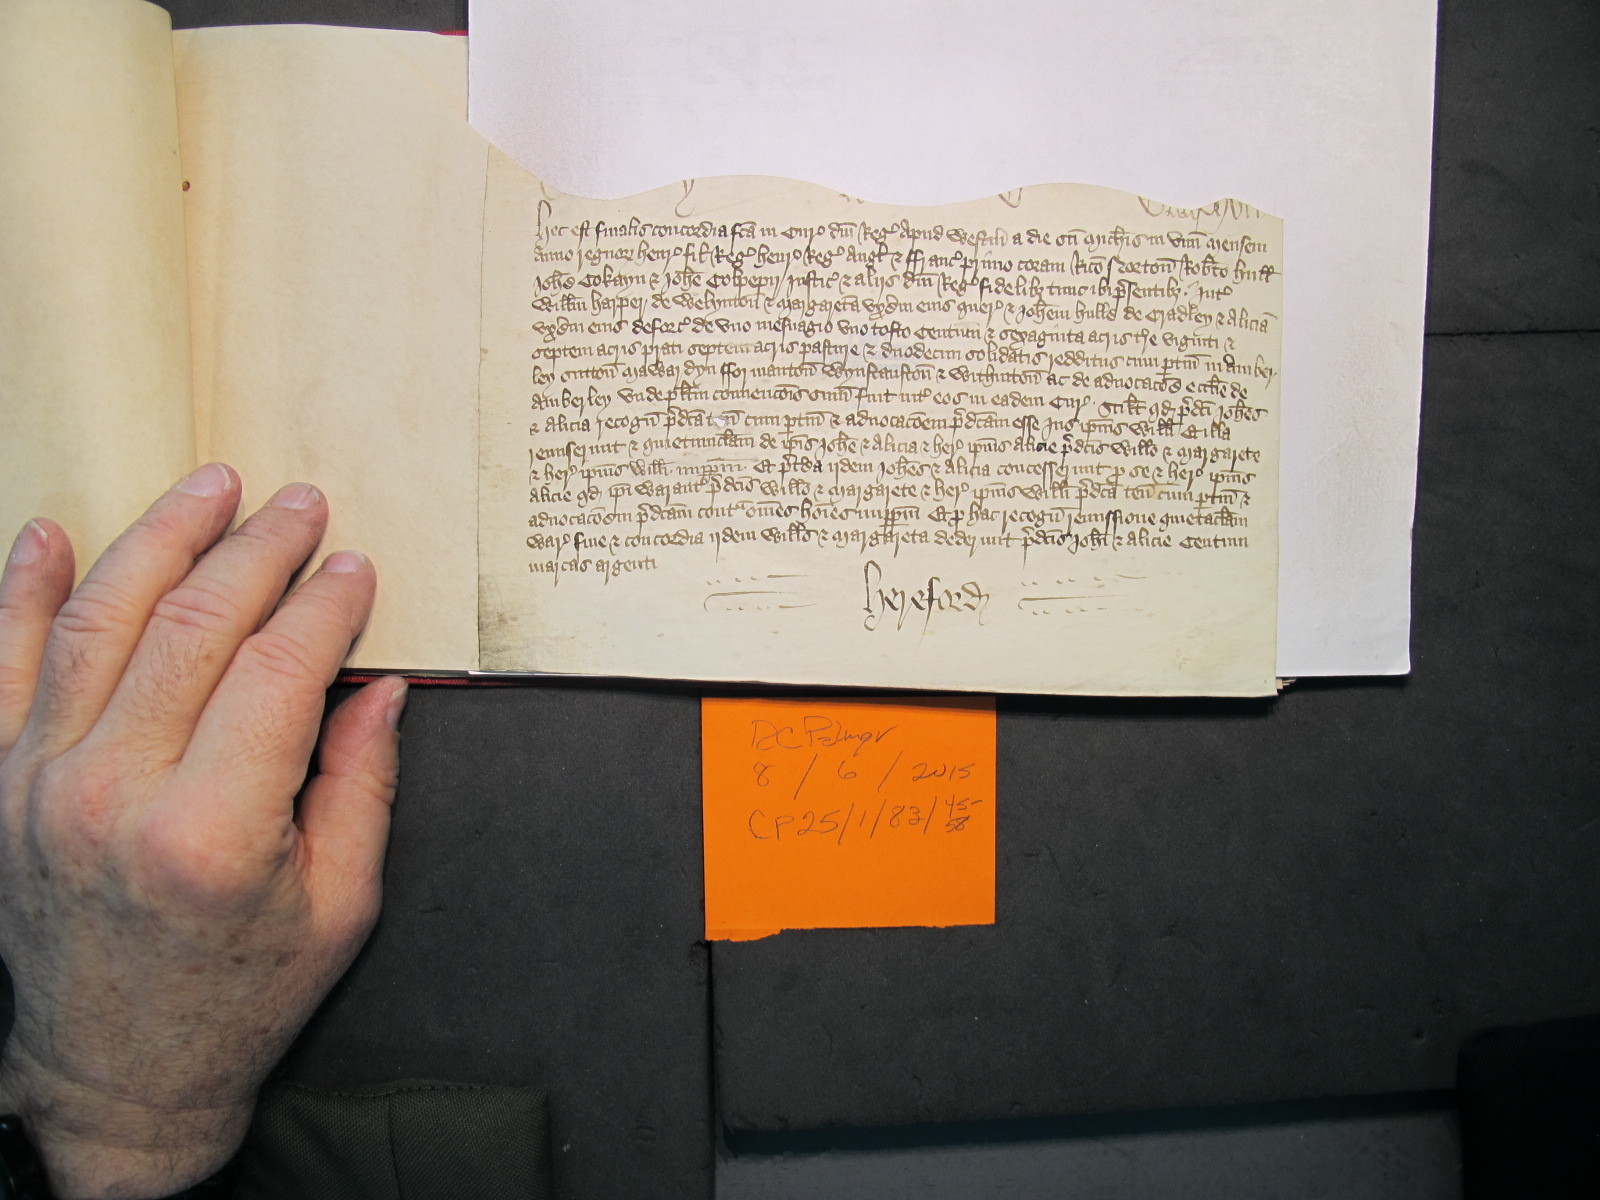 Hec est finalis concordia fca in Cur' dni Reg' apud Westm a die sci Mich'is in unu mensem
Anno regnor Henr' fil' Reg' Henr' Reg' Angl' & ffranc' primo coram Rico Norton Robto Hull
Johe Cokayn & Johe Colpepir Justic' & aliis dni Reg' fidelib3 tunc ibi p'sentib3 Int'
Willm harper de Welynton & Margareta ux'em eius quer' & Johem hulle de Cradley & Aliciam
ux'em eius deforc' de uno mesuagio uno tofto Centum & sexaginta acris t're viginti &
septem acris prati septem acris pasture & duodecim solidatis redditus cum ptin in Amber
ley Sutton Mawardyn ffromanton Wynstanston & Withinton ac de advocacoe eccl'ie de
Amberley unde pl'itm convencois sum fuit int' eos in eadem Cur' Scil't qd p'dci Joh'es
& Alicia recogn p'dca ten cum ptin & advocacoem p'dcam esse Jus ip'ius Will'i Et illa
remiserunt & quietumclam de ip'is Joh'e & Alicia & her' ip'ius Alicie p'dcis Will'o & Margarete
& her' ip'ius Will'i imppm Et p't'ea iidem Joh'es & Alicia concesserunt p se & her' ip'ius
Alicie qd ip'i warant' p'dcis Will'o & Margarete & her' ip'ius Will'i p'dca ten cum ptin &
advocacoem p'dcam cont' om'es ho'ies imppm Et p hac recogn remissione quietaclam
War' fine & concordia iidem Will's & Margareta dederunt p'dcis Joh'i & Alicie Centum
marcas argenti
Hereford
DC Palmer
8 / 6 / 2015
CP25/1/83/45-58